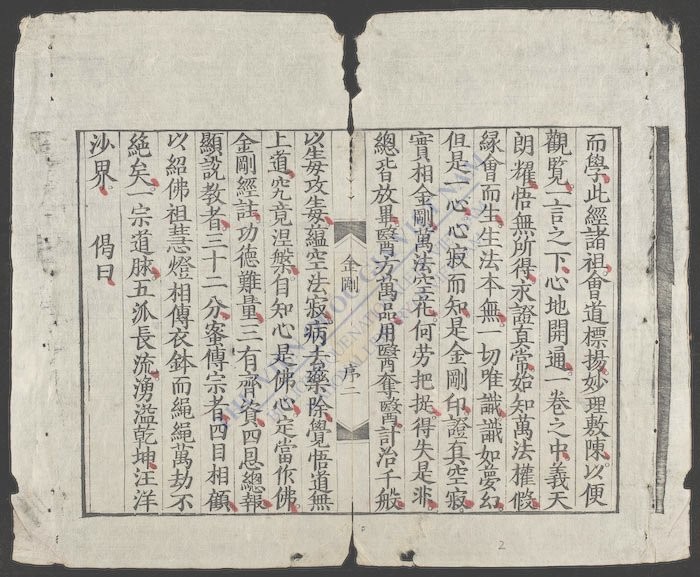 而學此經諸祖會道標揚妙理敷陳以便
觀覽一言之下心地開通一卷之中義天
朗耀悟無所得永證真常始知萬法權假
緣會而生生法本無一切唯識識如夢幻
但是一心心寂而知是金剛印證真空寂
實相金剛萬法空花何勞把捉得失是非
總皆放畢醫方萬品用醫奪醫計治千般
金剛 序二
以毒攻毒蘊空法寂病去藥除覺悟道無
上道究竟涅槃自知心是佛心定當作佛
金剛經註功德難量三有齊資四恩總報
顯說教者三十二分蜜傳宗者四目相顧
以紹佛祖慧燈相傳衣鉢而繩繩萬劫不
絕矣一宗道脉五派長流湧溢乾坤汪洋
沙界 偈曰
2